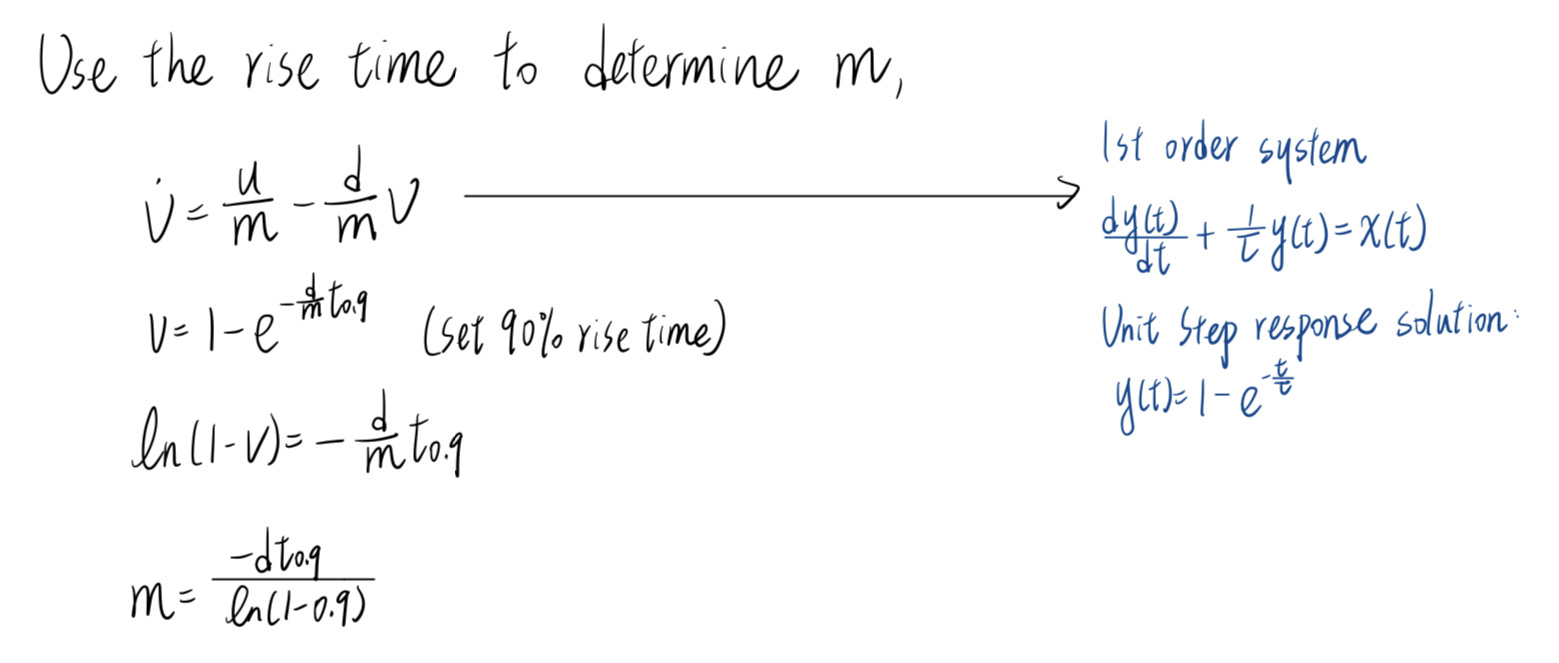 Use the rise time to determine m,
v̇ = u/m - d/m v
v = 1 - e^(-d/m t0.9) (set 90% rise time)
ln(1-v) = - d/m t0.9
m = -dt0.9 / ln(1-0.9)
1st order system
dy(t)/dt + 1/τ y(t) = x(t)
Unit Step response solution:
y(t) = 1 - e^(-t/τ)